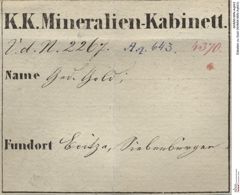 K.K.Mineralien-Kabinett.
V.d.N. 2267. A.q. 643. 4370.
Name Ged. Gold;
Fundort Boitza, Siebenbürgen